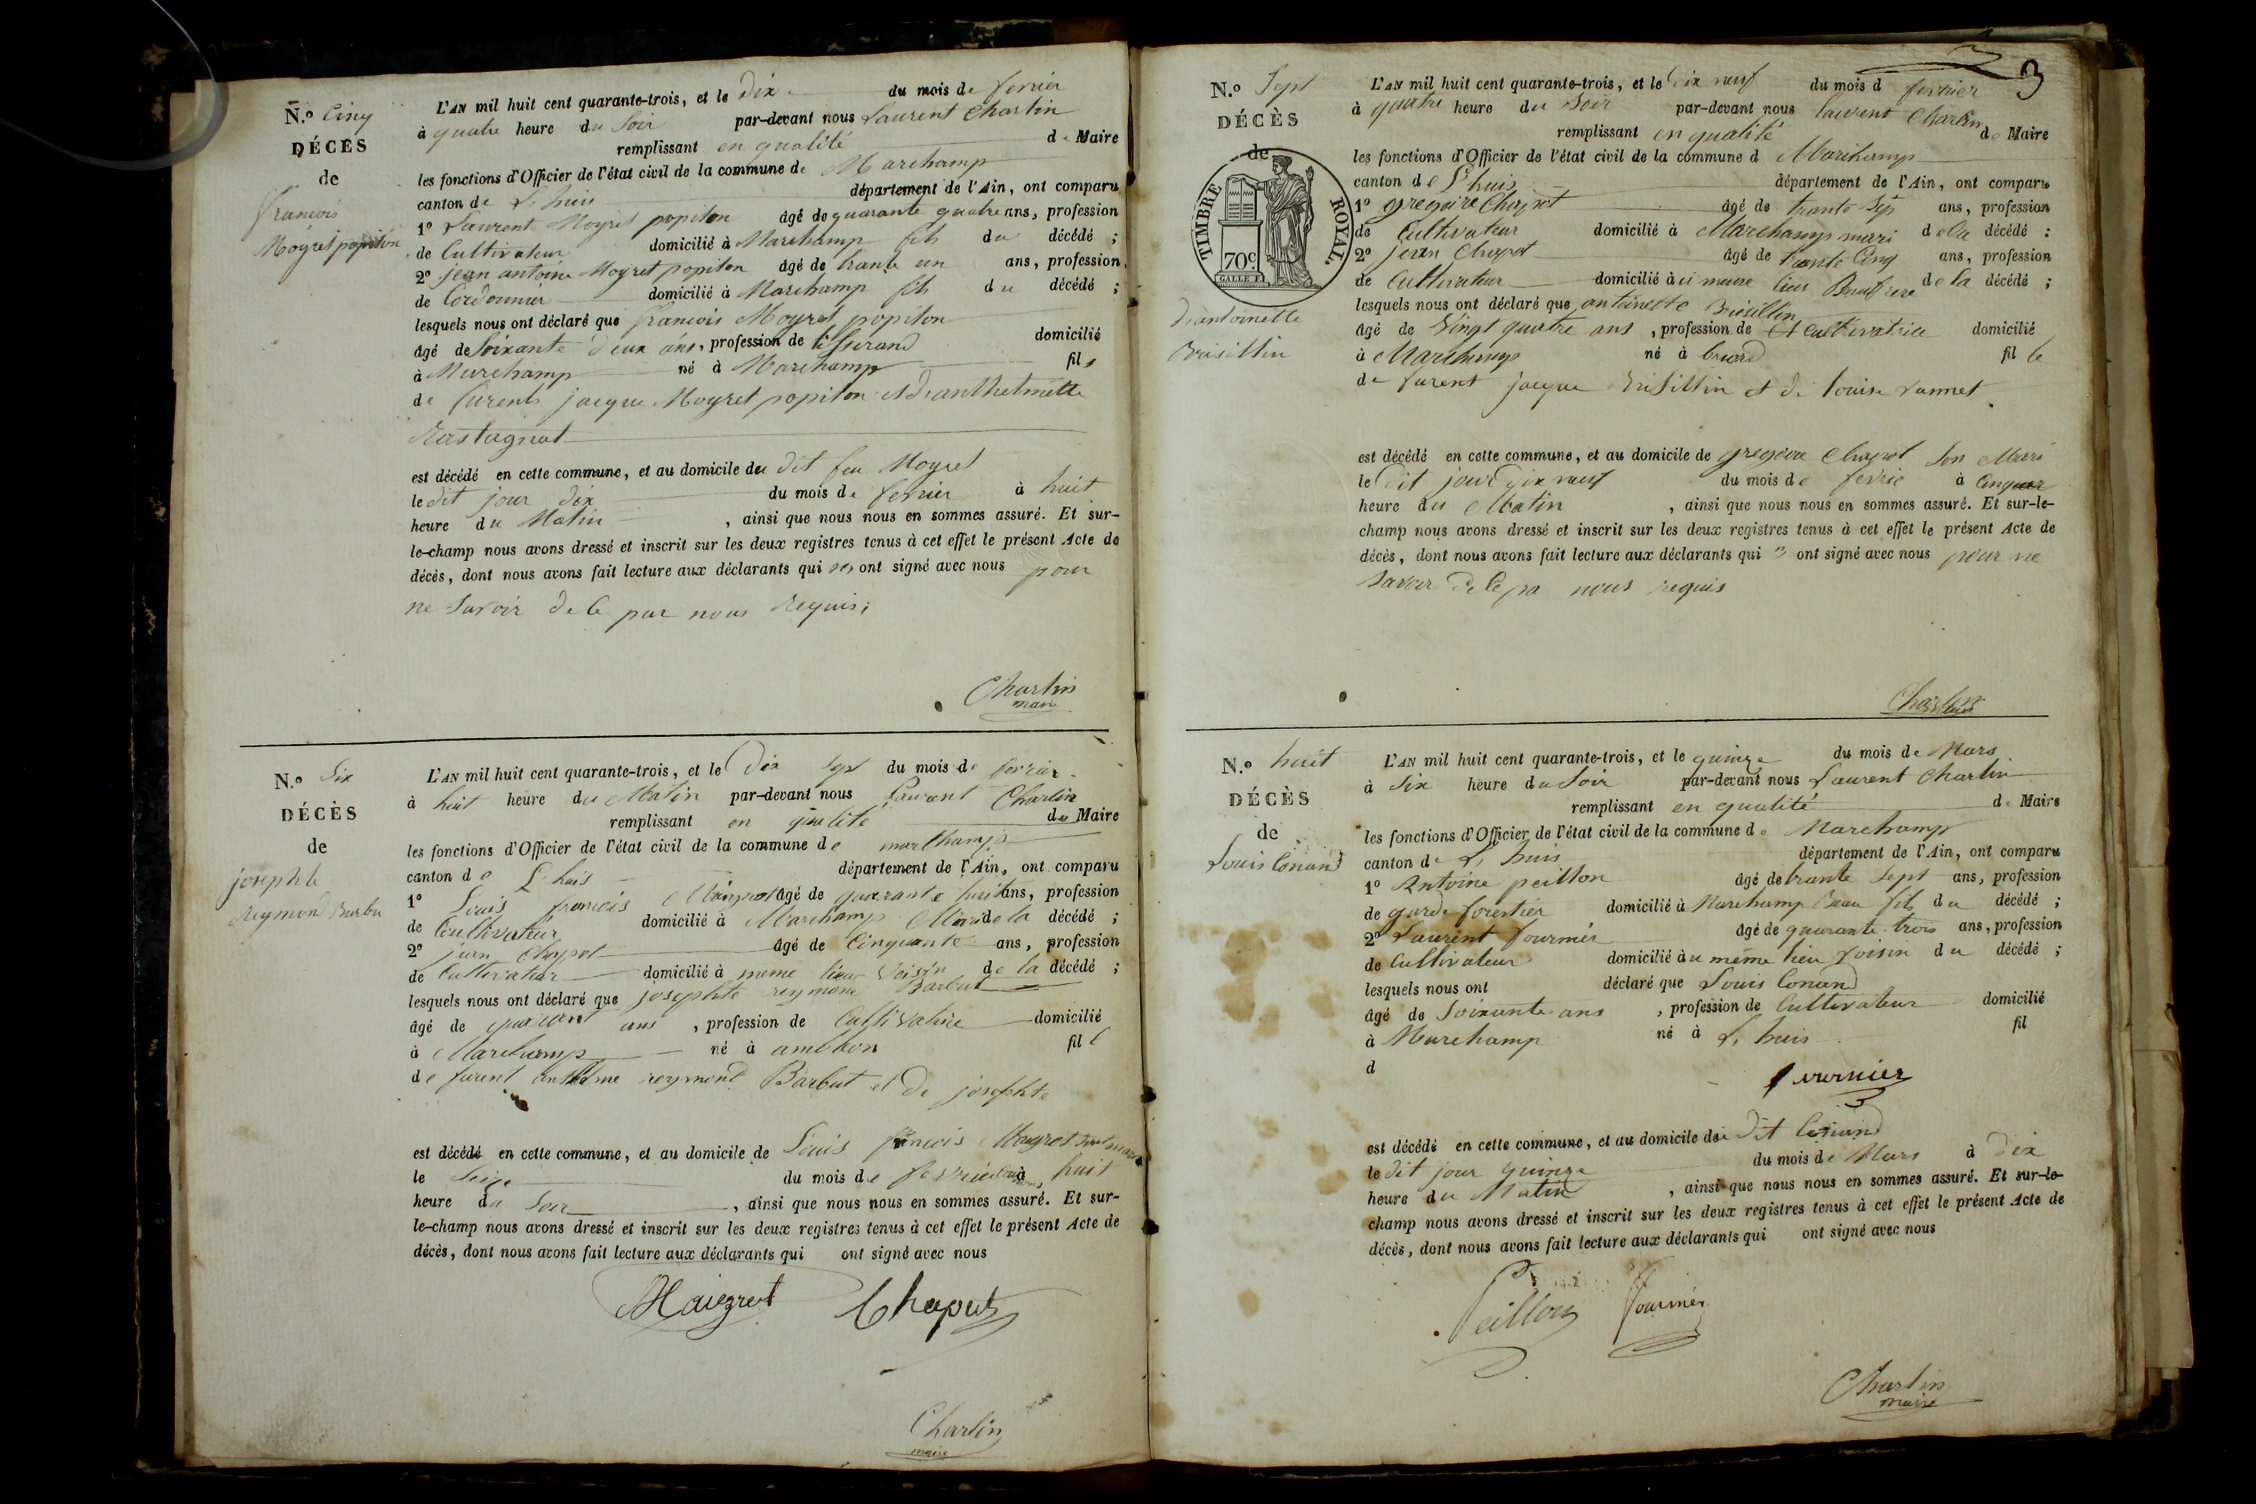 N.º Cinq
DÉCÈS
de
francois
Moyret popiton
L'AN mil huit cent quarante-trois, et le Dix du mois de fevrier
à quatre heure du Soir par-devant nous Laurent Charlin
remplissant en qualité de Maire
les fonctions d'Officier de l'état civil de la commune de Marchamp
canton de L, huis département de l'Ain, ont comparu
1º Laurent Moyret popiton âgé de quarante quatre ans, profession
de Cultivateur domicilié à Marchamp fils du décédé ;
2º jean antoine Moyret popiton âgé de trante un ans, profession
de Cordonnier domicilié à Marchamp fils du décédé ;
lesquels nous ont déclaré que francois Moyret popiton
âgé de Soixante deux ans, profession de tisserand domicilié
à Marchamp né à Marchamp fils
de furent jacque Moyret popiton et dranthelmette
Rastagnat
est décédé en cette commune, et au domicile du dit feu Moyret
le dit jour dix du mois de fevrier à huit
heure du Matin, ainsi que nous nous en sommes assuré. Et sur-
le-champ nous avons dressé et inscrit sur les deux registres tenus à cet effet le présent Acte de
décès, dont nous avons fait lecture aux déclarants qui ont signé avec nous pour
ne Savoir de Ce par nous Requis,
Charlin
maire
N.º Six
DÉCÈS
de
josephte
Reymond Barbu
L'AN mil huit cent quarante-trois, et le Dix Sept du mois de fevrier
à huit heure du Matin par-devant nous Laurent Charlin
remplissant en qualité de Maire
les fonctions d'Officier de l'état civil de la commune de marchamp
canton de L huis département de l'Ain, ont comparu
1º Louis francois Maigrot âgé de quarante huit ans, profession
de Cultivateur domicilié à Marchamp Mari de la décédé ;
2º jean Chapot âgé de Cinquante ans, profession
de Cultivateur domicilié à meme lieu Voisin de la décédé ;
lesquels nous ont déclaré que josephte reymond Barbut
âgé de quarant ans, profession de Cultivatrice domicilié
à Marchamp né à ambleon fil l
de furent antelme reymond Barbut et de josephte
est décédé en cette commune, et au domicile de Louis francois Maigrot Son mari
le Seize du mois de fevrier à huit
heure du Soir, ainsi que nous nous en sommes assuré. Et sur-
le-champ nous avons dressé et inscrit sur les deux registres tenus à cet effet le présent Acte de
décès, dont nous avons fait lecture aux déclarants qui ont signé avec nous
Maigrot Chaput
Charlin
maire
3
N.º Sept
DÉCÈS
de
TIMBRE ROYAL.
70c
GALLE F.
Brisillin
L'AN mil huit cent quarante-trois, et le dix neuf du mois d fevrier
à quatre heure du Soir par-devant nous laurent Charlin
remplissant en qualité de Maire
les fonctions d'Officier de l'état civil de la commune d Marchamp
canton de L huis département de l'Ain, ont comparu
1º gregoire Chapot âgé de trante Sept ans, profession
de Cultivateur domicilié à Marchamp mari de la décédé ;
2º jean Chapot âgé de trante Cinq ans, profession
de Cultivateur domicilié à u meme lieu Baufrere de la décédé ;
lesquels nous ont déclaré que antoinette Brisillin
âgé de Vingt quatre ans, profession de Cultivatrice domicilié
à Marchamp né à briord fil le
de furent jacque Brisillin et de louise Vannet
est décédé en cette commune, et au domicile de gregoire Chapot Son Mari
le dit jour dix neuf du mois de fevrie à Cinq
heure du Matin, ainsi que nous nous en sommes assuré. Et sur-le-
champ nous avons dressé et inscrit sur les deux registres tenus à cet effet le présent Acte de
décès, dont nous avons fait lecture aux déclarants qui ont signé avec nous pour ne
Savoir de Ce pa nous requis
Charlin
N.º huit
DÉCÈS
de
Louis Conand
L'AN mil huit cent quarante-trois, et le quinze du mois de Mars
à Six heure du Soir par-devant nous Laurent Charlin
remplissant en qualité de Maire
les fonctions d'Officier de l'état civil de la commune de Marchamp
canton de L, huis département de l'Ain, ont comparu
1º Antoine peillon âgé de trante Sept ans, profession
de garde forestier domicilié à Marchamp Beau fils du décédé ;
2º Laurent fournier âgé de quarante trois ans, profession
de Cultivateur domicilié à u même lieu Voisin du décédé ;
lesquels nous ont déclaré que Louis Conand
âgé de Soixante ans, profession de Cultivateur domicilié
à Marchamp né à L, huis fil
d
fournier
est décédé en cette commune, et au domicile du dit Conand
le dit jour quinze du mois de Mars à Dix
heure du Matin, ainsi que nous nous en sommes assuré. Et sur-le-
champ nous avons dressé et inscrit sur les deux registres tenus à cet effet le présent Acte de
décès, dont nous avons fait lecture aux déclarants qui ont signé avec nous
Peillon fournier
Charlin
maire